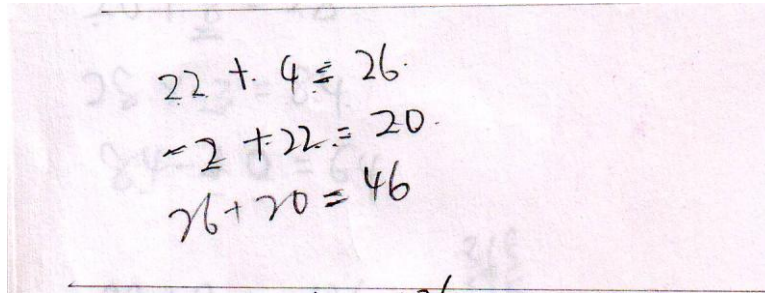 22 + 4 = 26
-2 + 22 = 20
26 + 20 = 46